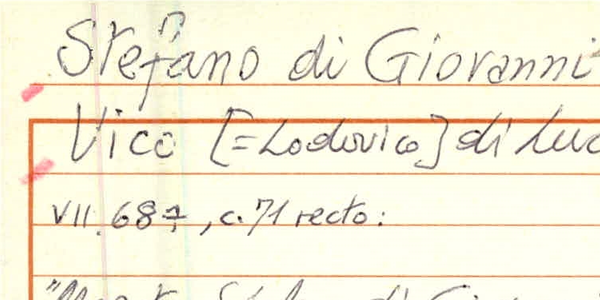 Stefano di Giovanni
Vico [=Lodovico] di Luc
VII. 687, c. 71 recto:
di